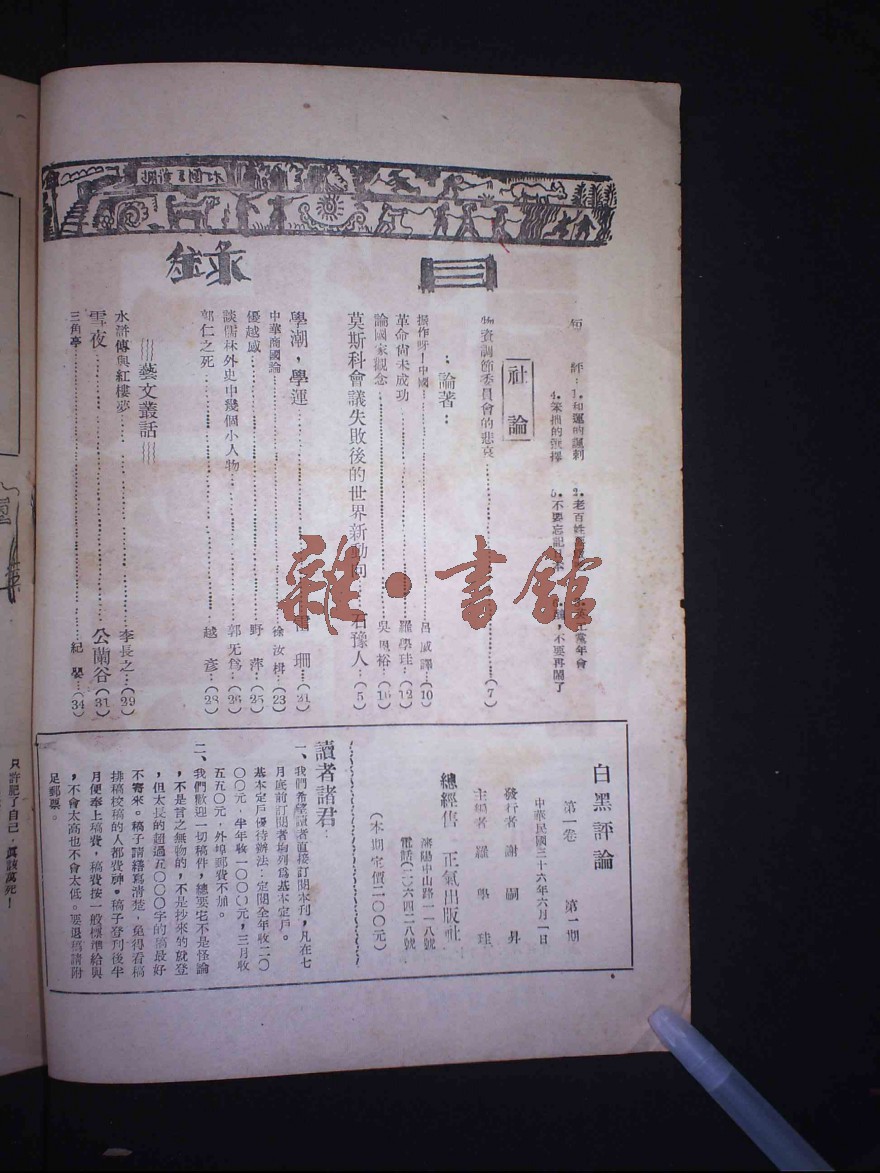 目錄
短評：1.和運的諷刺
3.老百姓
參政黨年會
4.笨拙的選擇
5.不要忘記
不要再鬧了
社論
物資調節委員會的悲哀……(7)
：論著：
操作呀！中國……呂威譯…(10)
革命尚未成功……羅學珪…(12)
論國家觀念……吳恩裕…(16)
莫斯科會議失敗後的世界新動向 石豫人…(5)
學潮，學運……珊…(21)
中華商國論……徐汝楫…(23)
優越感……野萍…(25)
談儒林外史中幾個小人物……郭旡為…(26)
郭仁之死……越彥…(28)
藝文叢話
水滸傳與紅樓夢……李長之…(29)
雪夜……公蘭谷…(31)
三角亭……紀嬰…(34)
雜·書館
白黑評論
第一卷 第一期
中華民國三十六年六月一日
發行者 謝嗣昇
主編者 羅學珪
總經售 正氣出版社
瀋陽中山路一一八號
電話(二)六四二八號
(本期定價二〇〇元)
讀者諸君：
一、我們希望讀者直接訂閱本刊，凡在七
月底前訂閱者均列為基本定戶。
基本定戶優待辦法：定閱全年收二〇
〇〇元，半年收一〇〇〇元，三月收
五五〇元，外埠郵費不加。
二、我們歡迎一切稿件，總要它不是怪論
，不是言之無物的，不是抄來的就登
，但太長的超過五〇〇〇字的稿最好
不寄來。稿子請繕寫清楚，免得看稿
排稿校稿的人都費神。稿子登刊後半
月便奉上稿費，稿費按一般標準給與
，不會太高也不會太低。要退稿請附
足郵票。
只許記了自己，真該萬死！